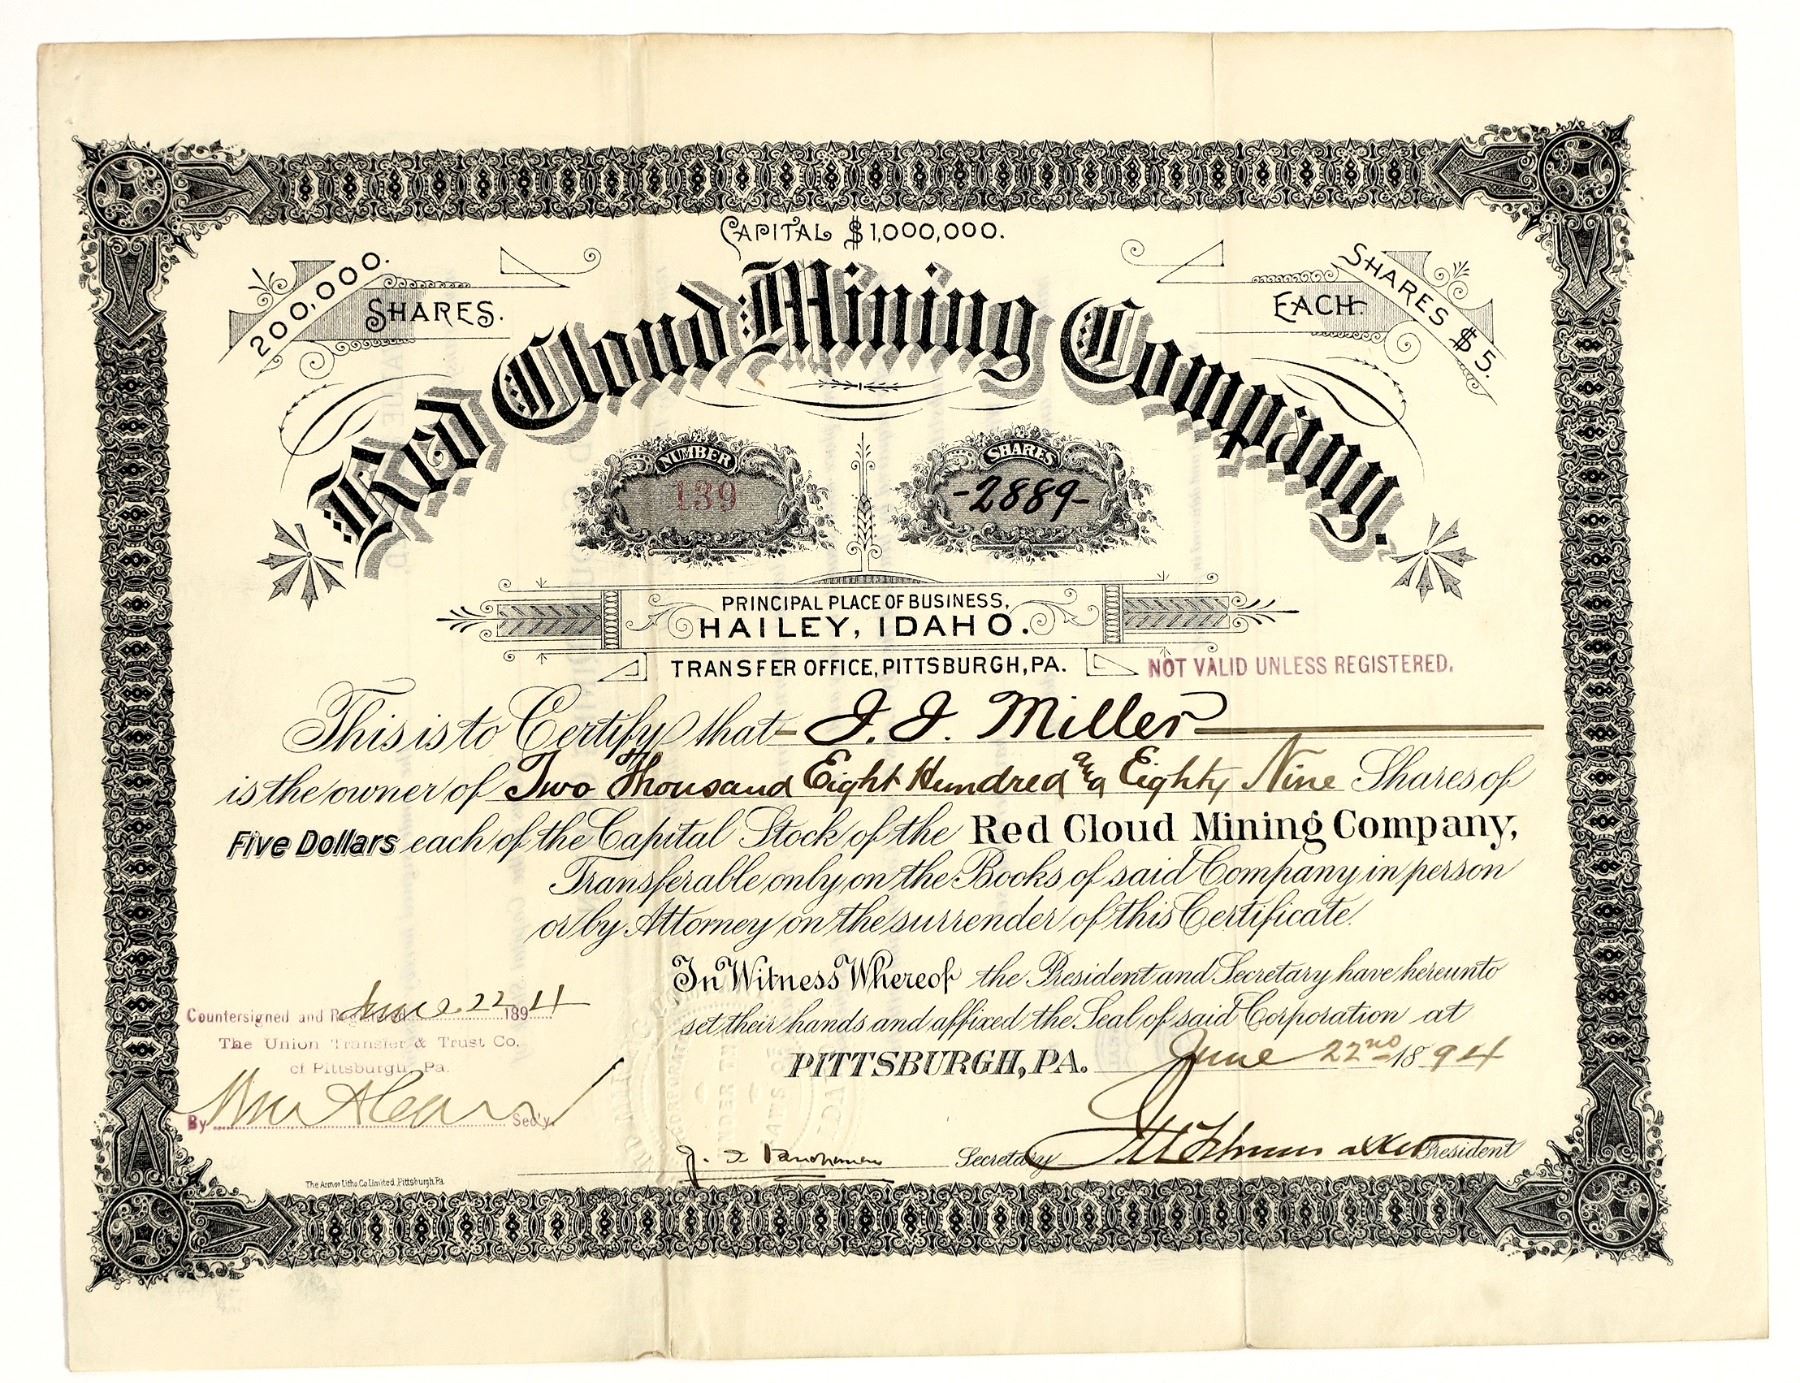 CAPITAL $1,000,000.
200,000.
SHARES.
SHARES $5.
EACH.
Red Cloud Mining Company.
NUMBER
139
SHARES
-2889-
PRINCIPAL PLACE OF BUSINESS,
HAILEY, IDAHO.
TRANSFER OFFICE, PITTSBURGH, PA.
NOT VALID UNLESS REGISTERED.
This is to Certify that J. J. Miller
is the owner of Two Thousand Eight Hundred and Eighty Nine Shares of
Five Dollars each of the Capital Stock of the Red Cloud Mining Company,
Transferable only on the Books of said Company in person
or by Attorney on the surrender of this Certificate.
In Witness Whereof the President and Secretary have hereunto
set their hands and affixed the Seal of said Corporation at
PITTSBURGH, PA. June 22nd 1894
Countersigned and Registered June 22 1894
The Union Transfer & Trust Co.
of Pittsburgh, Pa.
By Sec'y
Secretary
President
The Armor Litho Co Limited, Pittsburgh, Pa